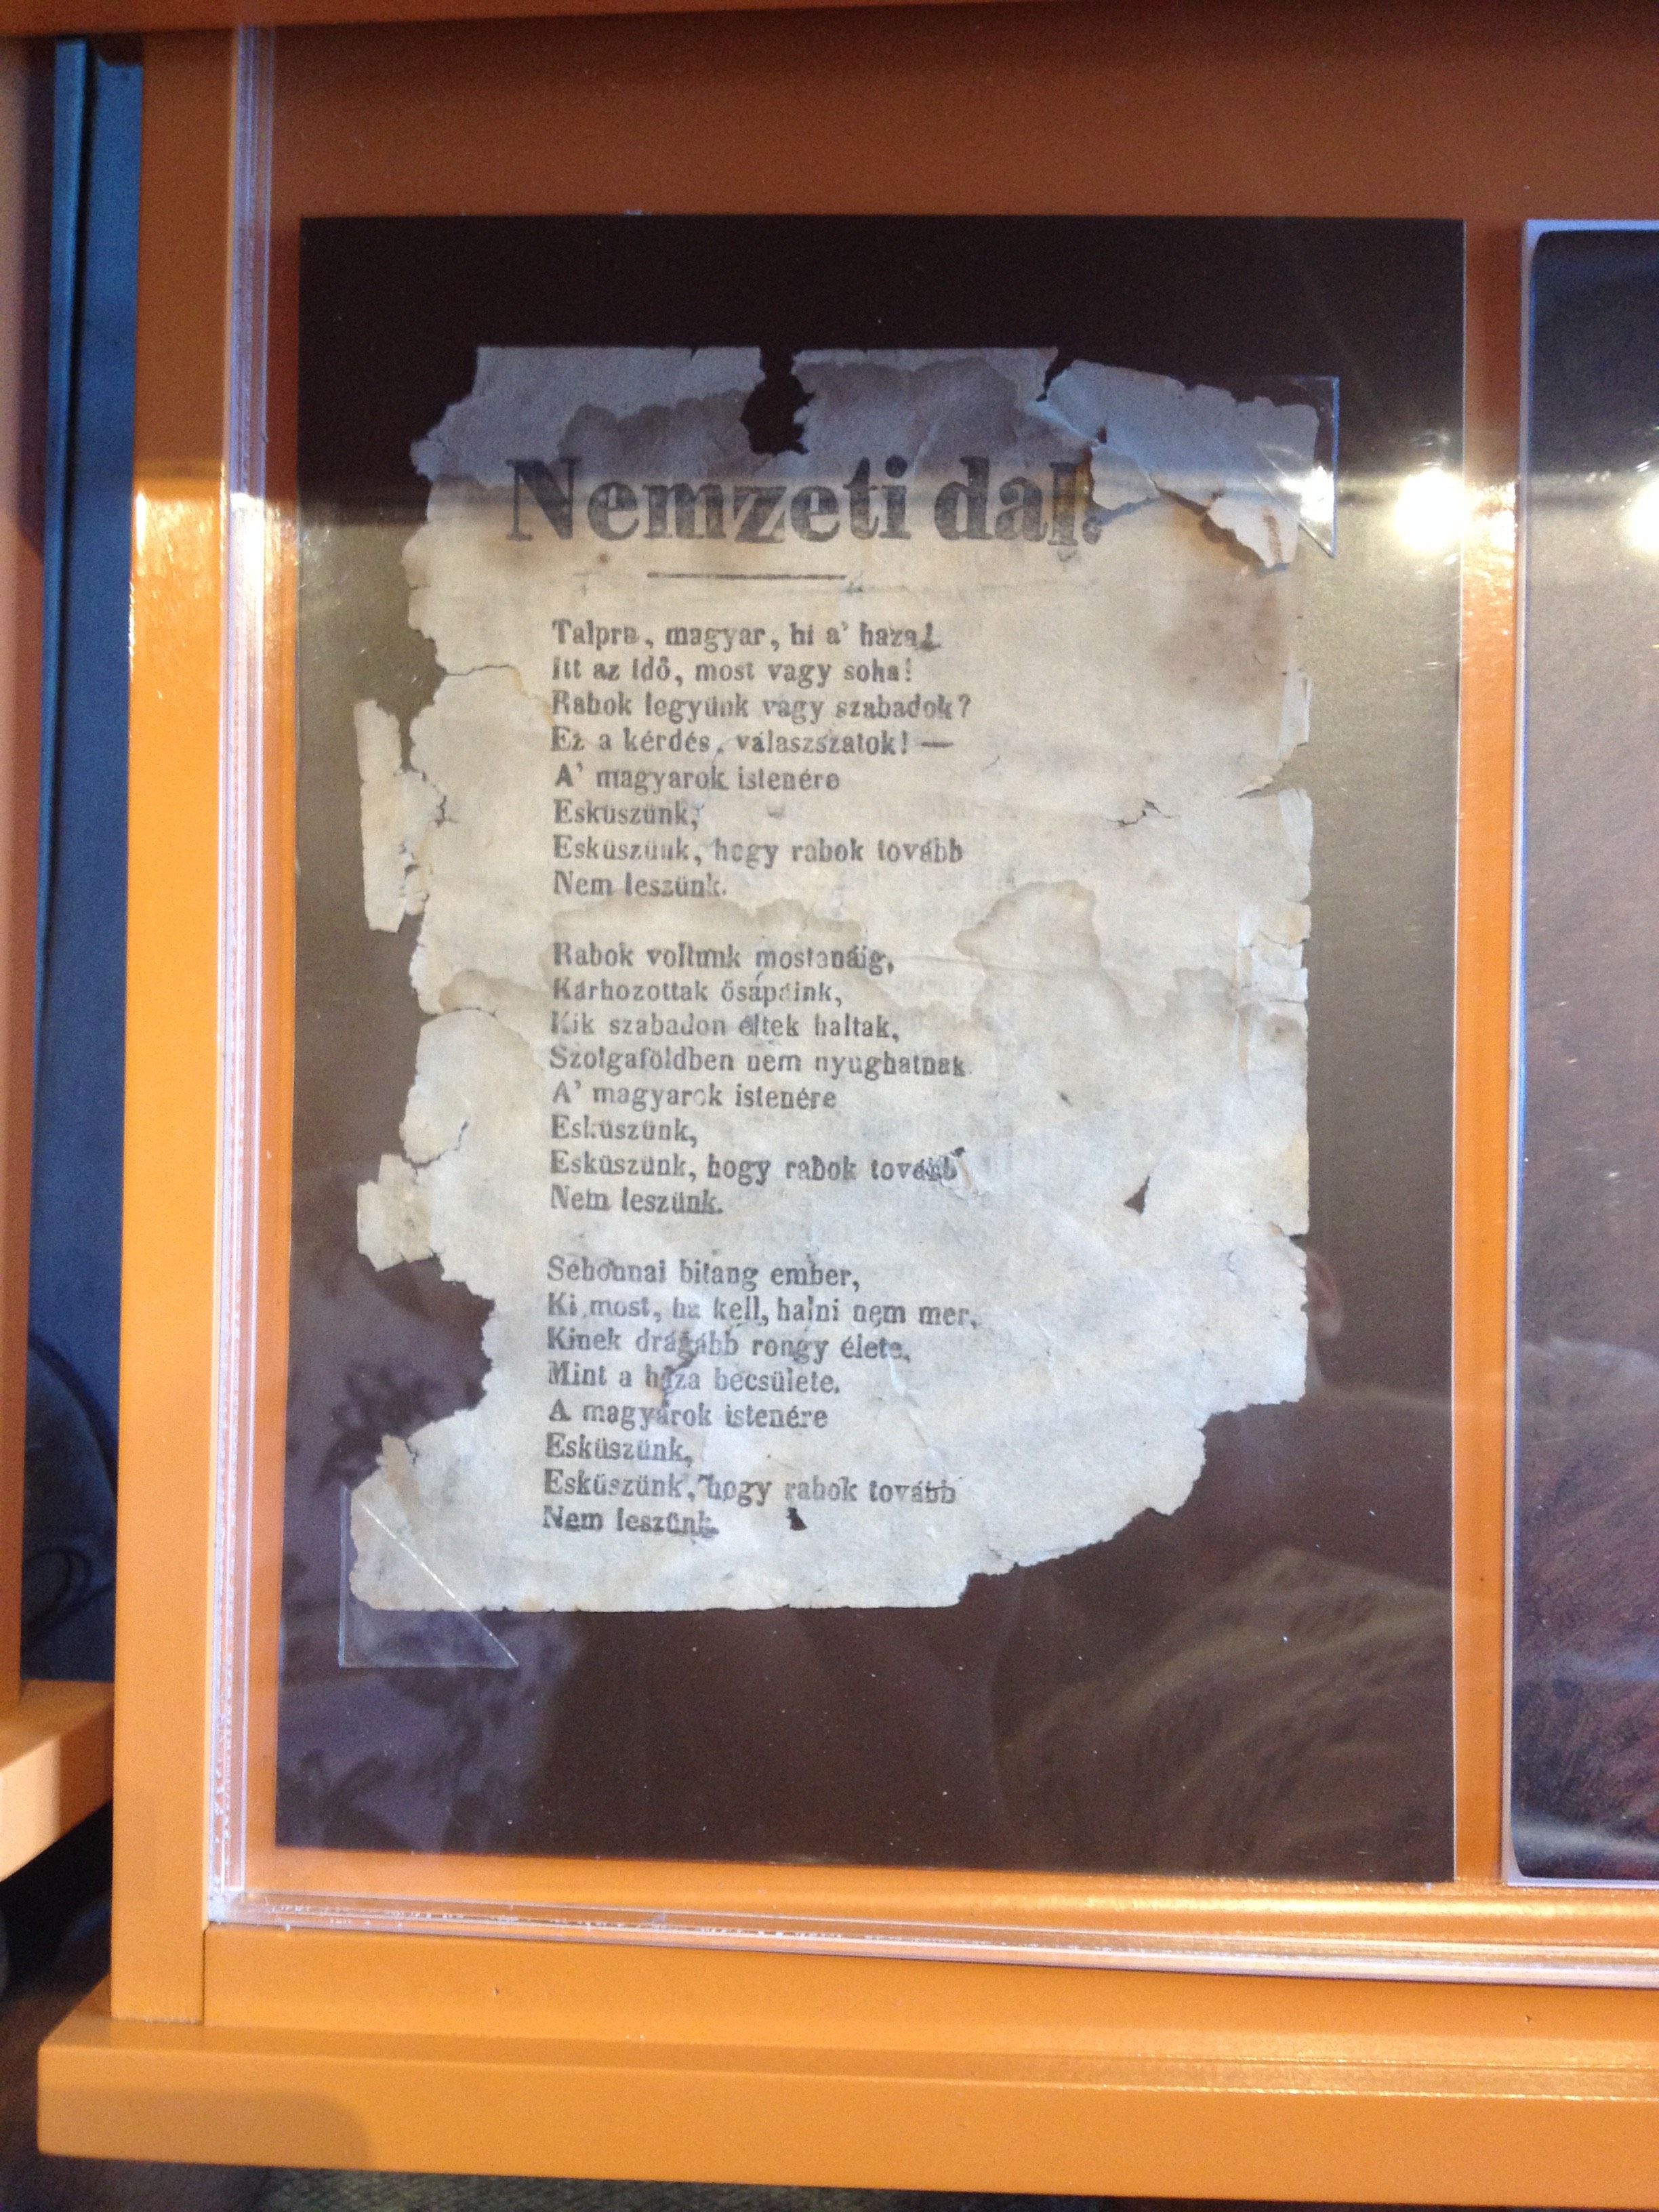 Nemzeti dal.
Talpra, magyar, hi a' haza!
Itt az idő, most vagy soha!
Rabok legyünk vagy szabadok?
Ez a kérdés, válaszszatok! —
A' magyarok istenére
Esküszünk,
Esküszünk, hogy rabok tovább
Nem leszünk.
Rabok voltunk mostanáig,
Kárhozottak ősapáink,
Kik szabadon éltek haltak,
Szolgaföldben nem nyughatnak.
A' magyarok istenére
Esküszünk,
Esküszünk, hogy rabok tovább
Nem leszünk.
Sehonnai bitang ember,
Ki most, ha kell, halni nem mer,
Kinek drágább rongy élete,
Mint a haza becsülete.
A magyarok istenére
Esküszünk,
Esküszünk, hogy rabok tovább
Nem leszünk.